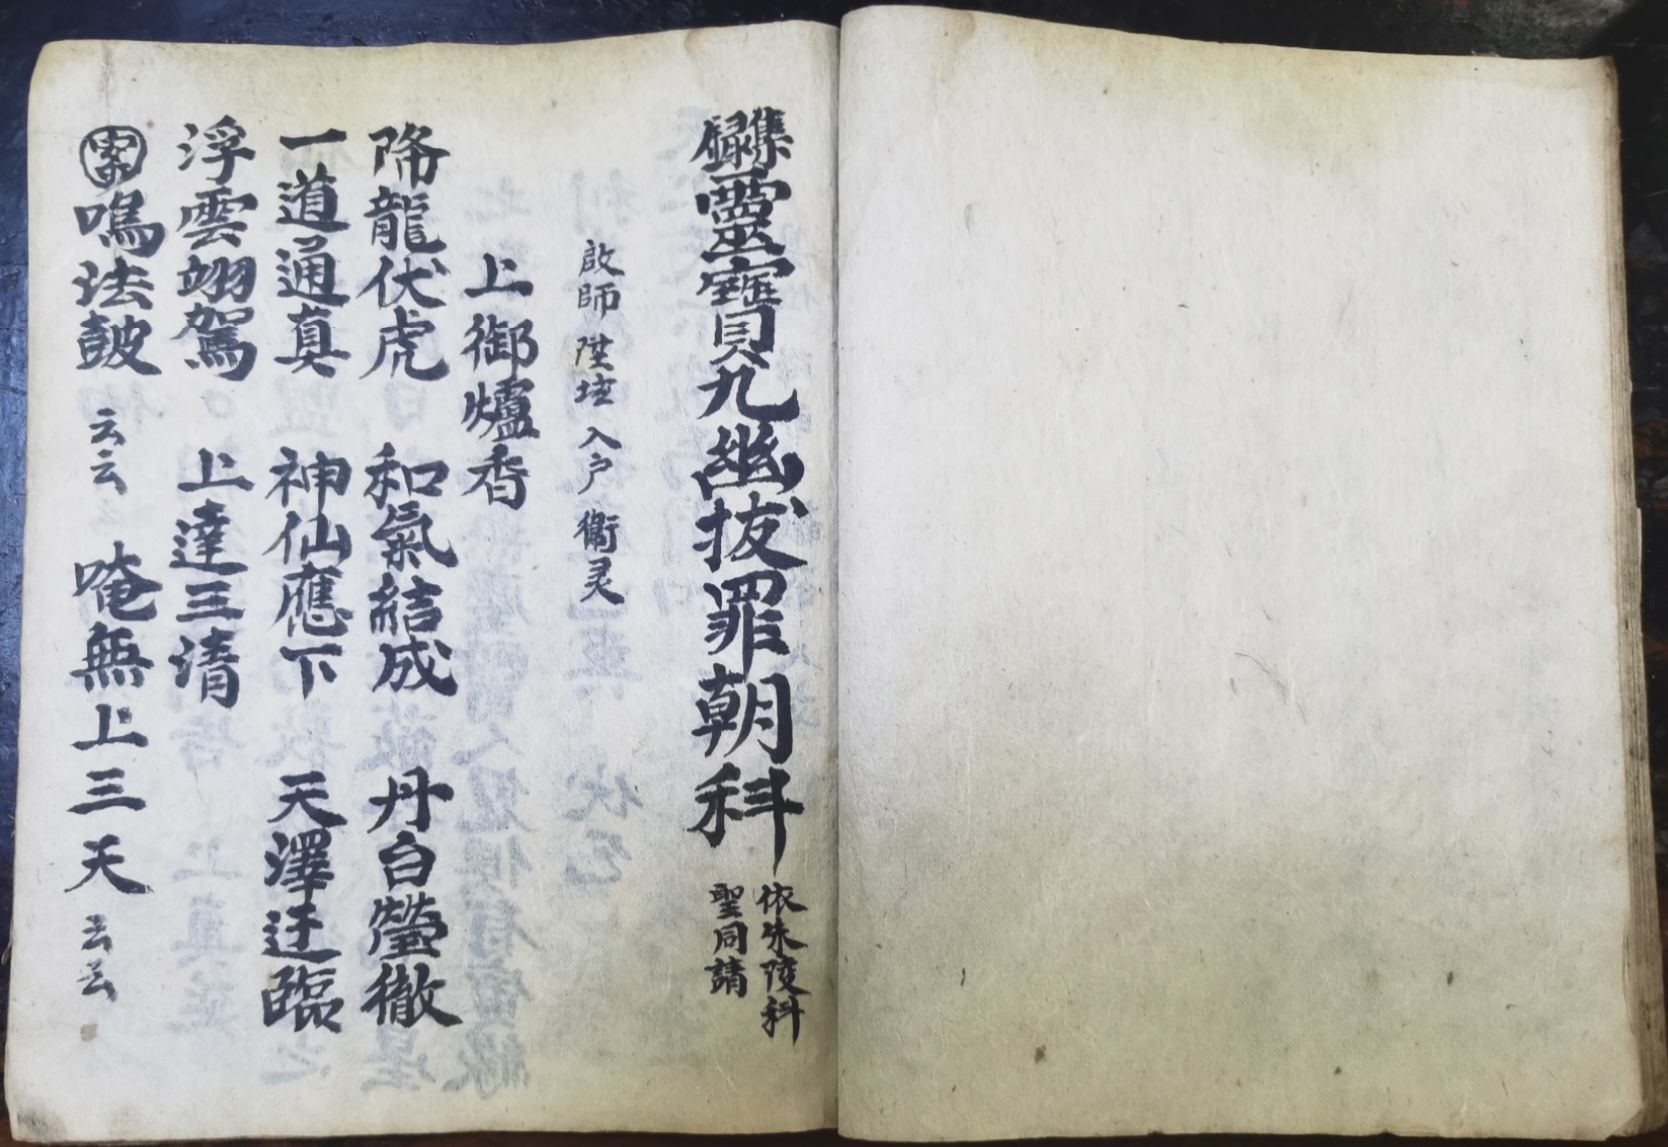 集錄靈寶九幽拔罪朝科
依朱陵科
聖同請
啟師 陞坛 入户 衞灵
上御爐香
降龍伏虎 和氣結成 丹白瑩徹
一道通真 神仙應下 天澤迂臨
浮雲翊駕 上達三清
密 鳴法鼓 云云 唵無上三天 云云